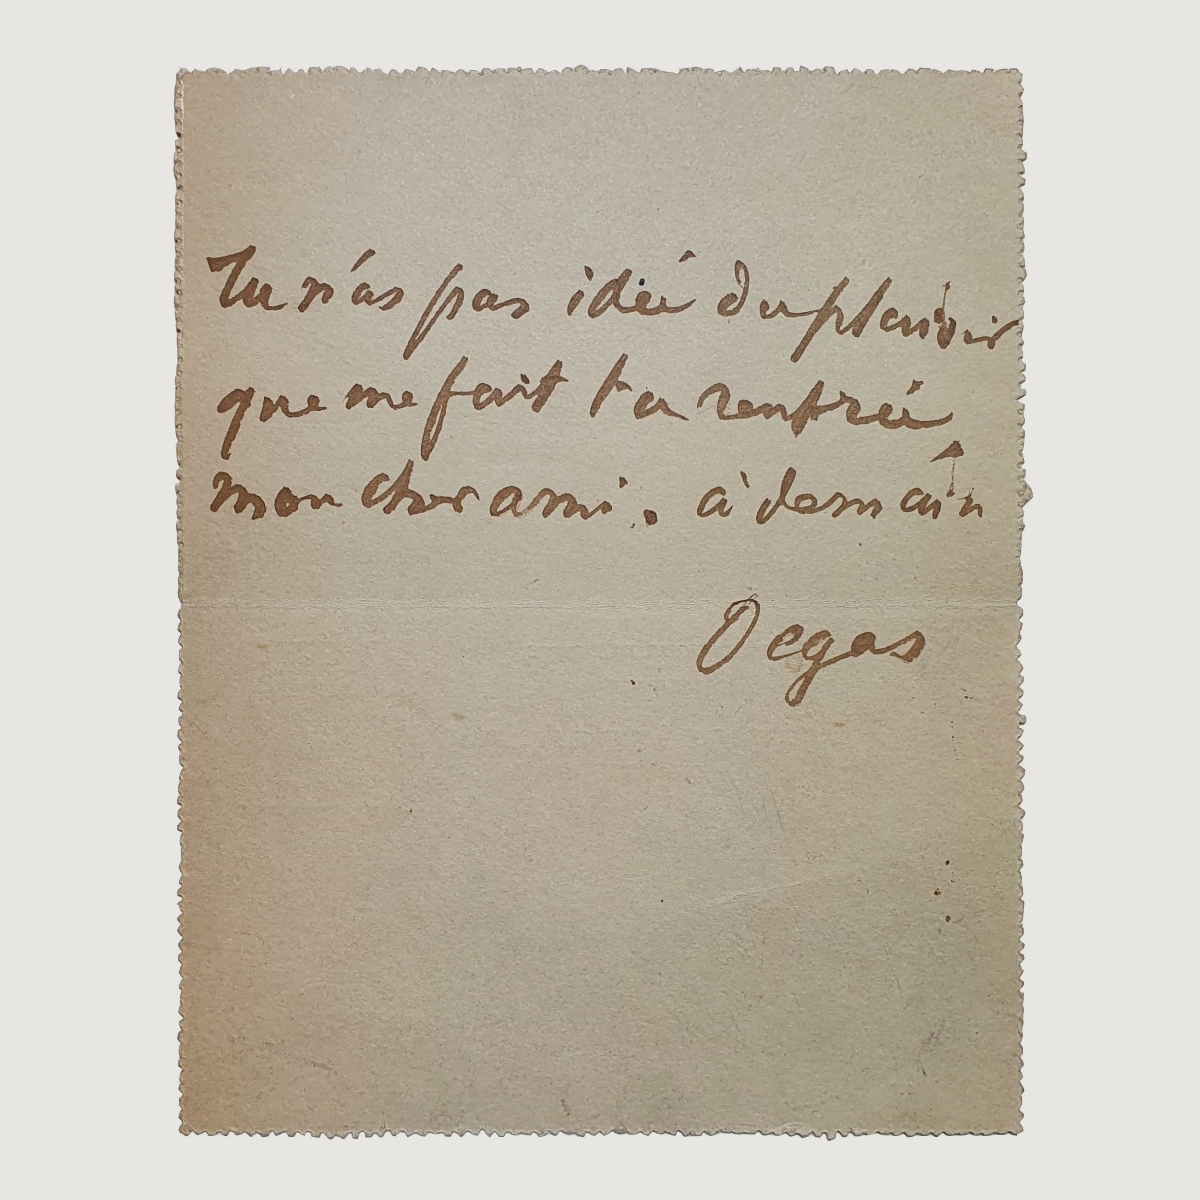 Tu n'as pas idée du plaisir
que me fait ta rentrée
mon cher ami. à demain
Degas